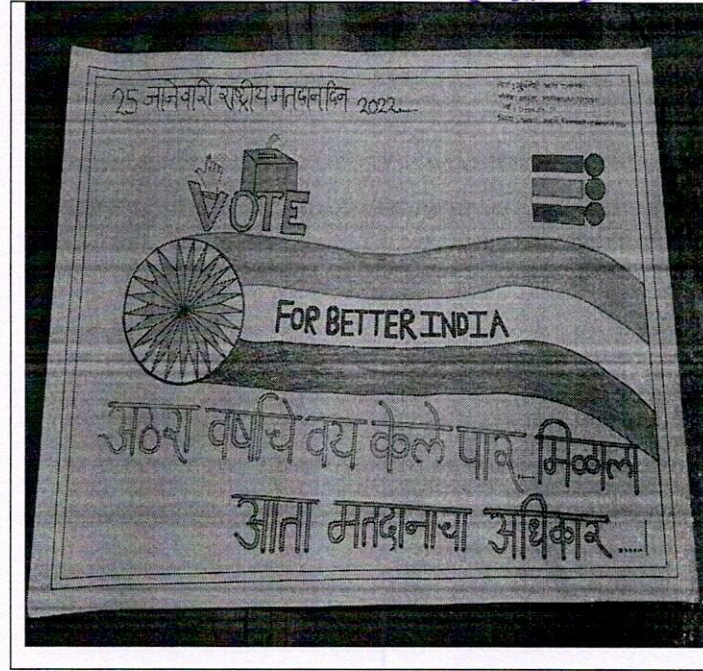 25 जानेवारी राष्ट्रीय मतदान दिन 2022....
VOTE
FOR BETTER INDIA
अठरा वर्षाचे वय केले पार... मिळाला
आता मतदानाचा अधिकार.....